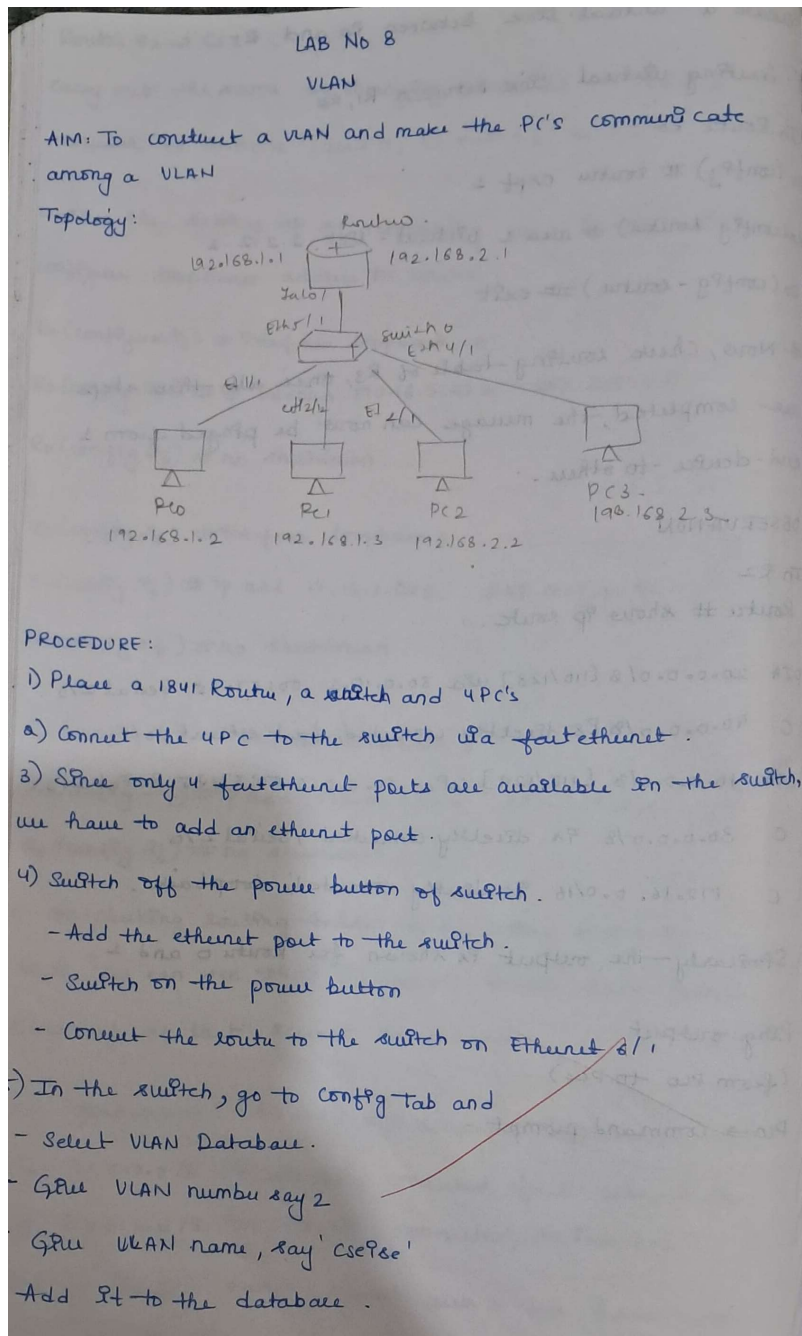 LAB No 8
VLAN
AIM: To construct a VLAN and make the PC's communicate
among a VLAN
Topology:
Router0.
192.168.1.1
192.168.2.1
Fa0/
Eth5/1
Switch 0
Eth 4/1
eth2/1
PC0
PC1
PC2
PC3.
192.168.1.2
192.168.1.3
192.168.2.2
198.168.2.3
PROCEDURE:
1) Place a 1841 Router, a switch and 4PC's
2) Connect the 4PC to the switch via fastethernet.
3) Since only 4 fastethernet ports are available in the switch,
we have to add an ethernet port.
4) Switch off the power button of switch.
- Add the ethernet port to the switch.
- Switch on the power button
- Connect the router to the switch on Ethernet 6/1
5) In the switch, go to config Tab and
- Select VLAN Database.
- Give VLAN number say 2
Give VLAN name, say 'cseise'
Add it to the database.